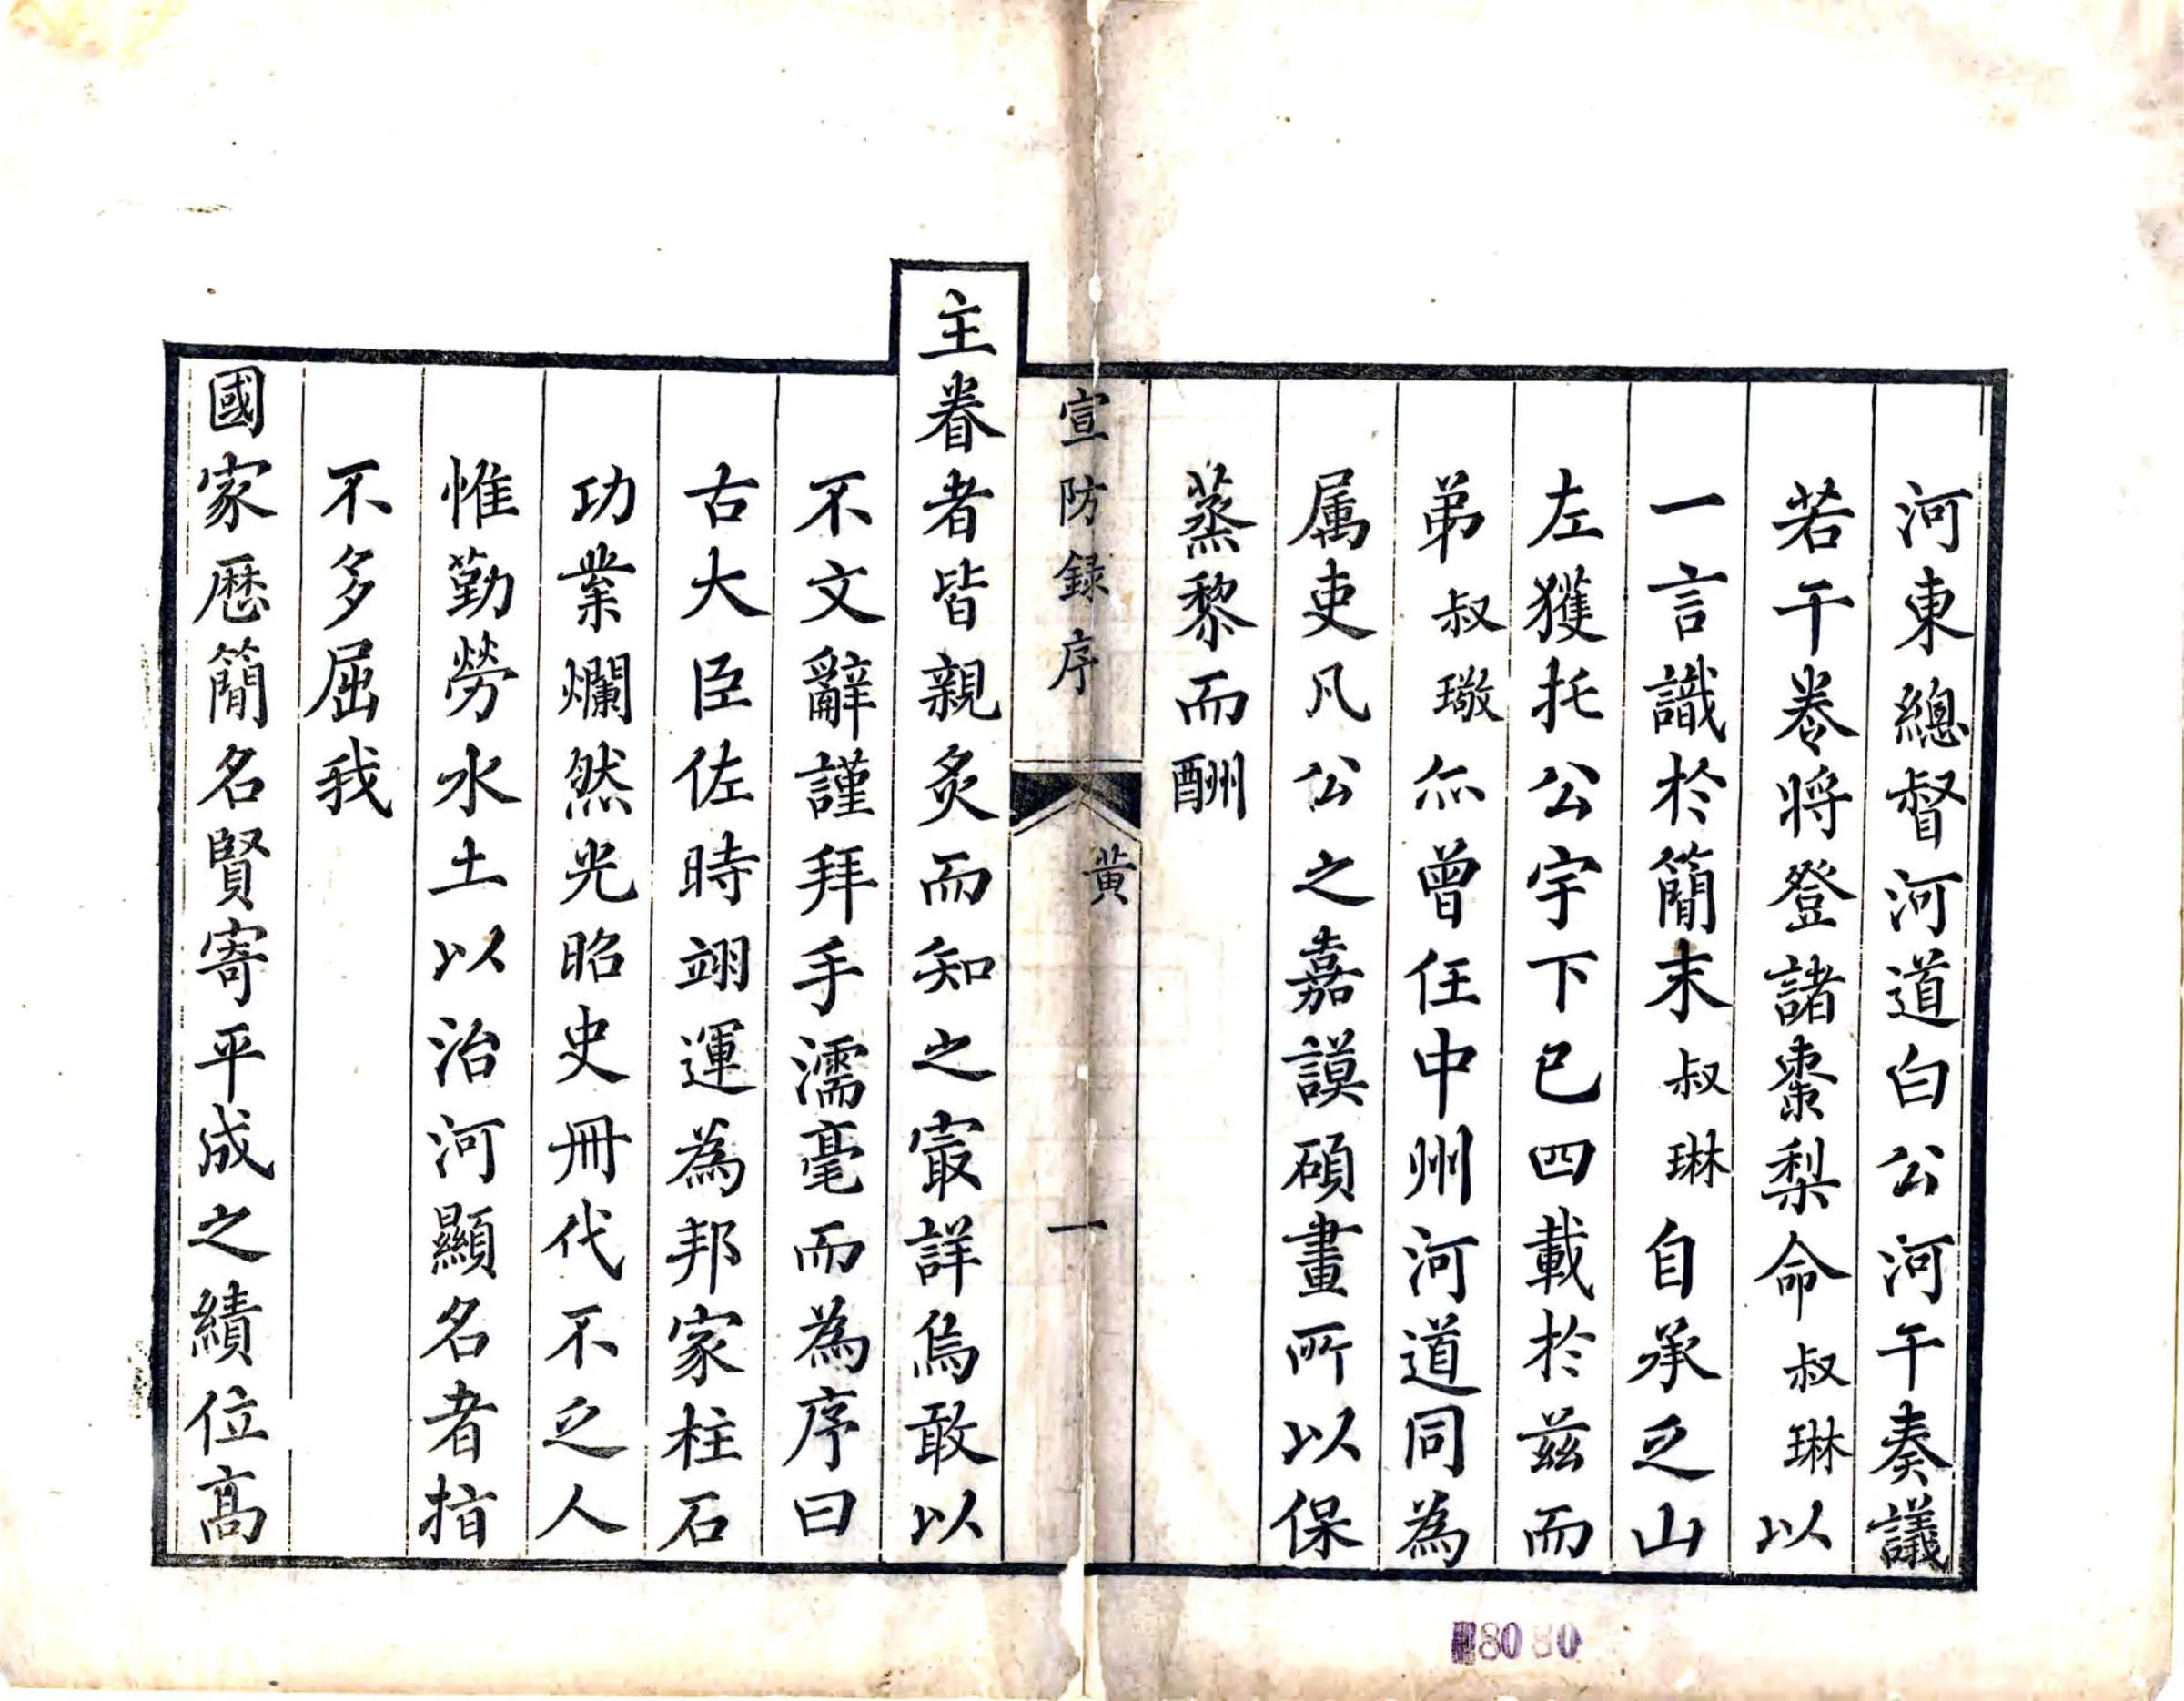 河東總督河道白公河干奏議
若干卷將登諸棗梨命叔琳以
一言識於簡末叔琳自承乏山
左獲托公宇下已四載於兹而
弟叔璥亦曾任中州河道同為
属吏凡公之嘉謨碩畫所以保
蒸黎而酬
宣防録序 黄 一
主眷者皆親炙而知之㝡詳烏敢以
不文辭謹拜手濡毫而為序曰
古大臣佐時翊運為邦家柱石
功業爛然光昭史冊代不乏人
惟勤勞水土以治河顯名者指
不多屈我
國家歴簡名賢寄平成之績位髙
8080